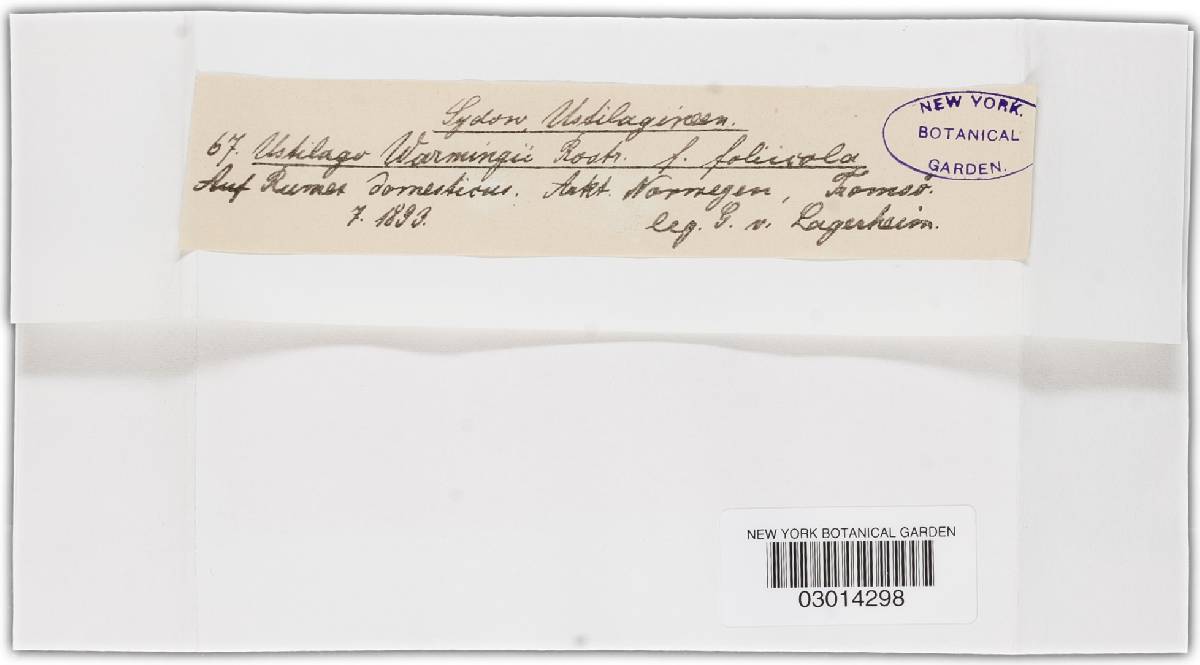 Sydow, Ustilagineen.
67. Ustilago Warmingii Rostr. f. foliicola
Auf Rumex domesticus. Arkt. Norwegen, Tromsö.
7. 1893. leg. G. v. Lagerheim.
NEW YORK.
BOTANICAL
GARDEN.
NEW YORK BOTANICAL GARDEN
03014298